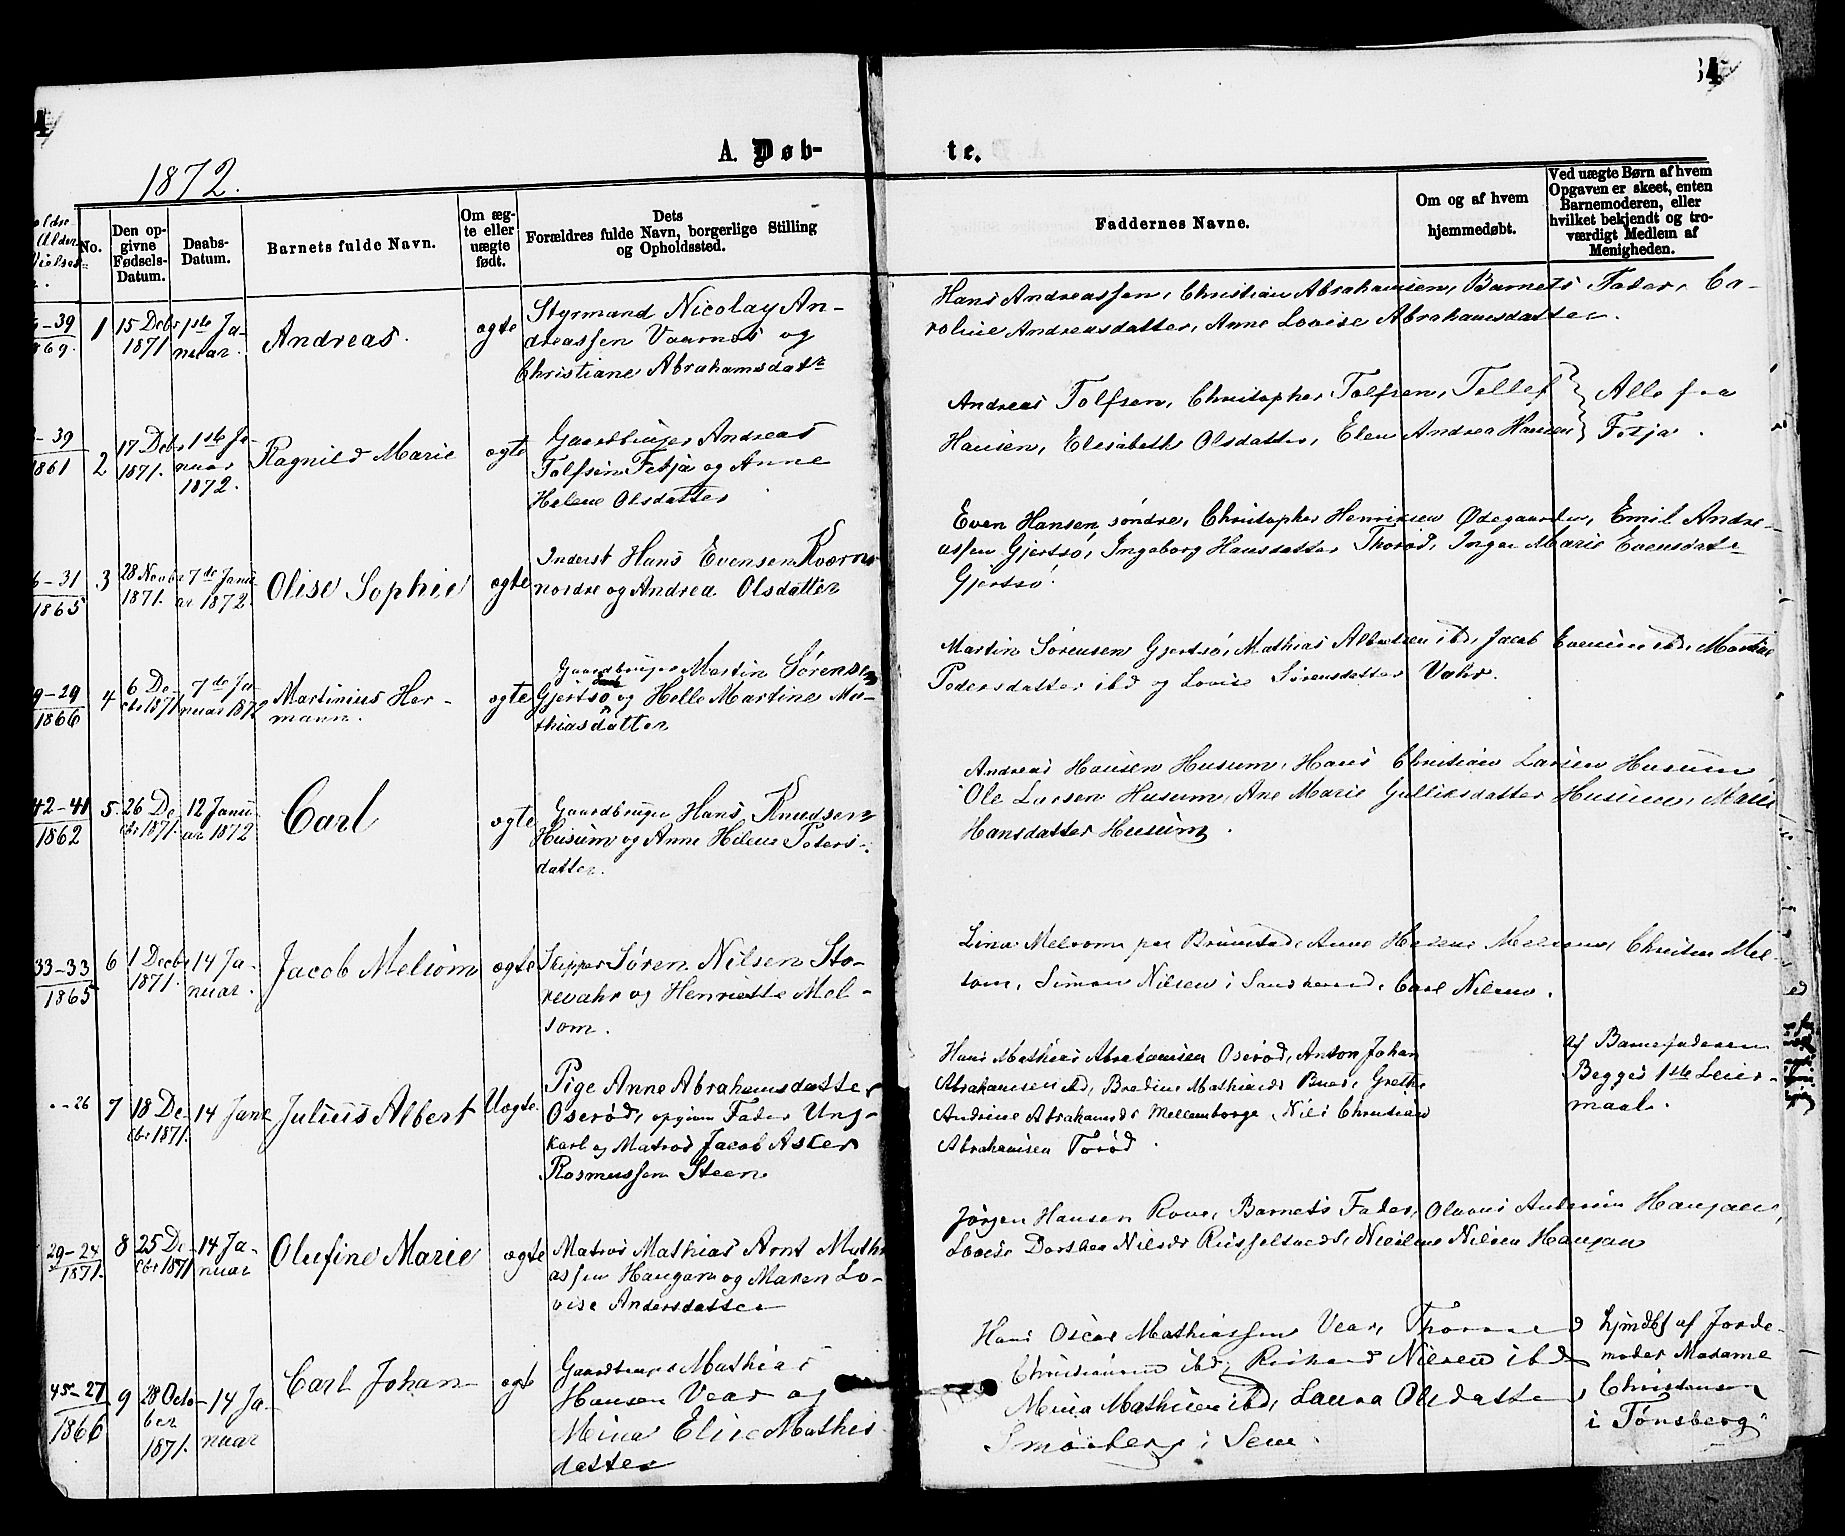 4
34
1872.
A. Døb-
te.
No.
Den op-
givne
Fødsels-
Datum.
Daabs-
Datum.
Barnets fulde Navn.
Om æg-
te eller
uægte
født.
Dets
Forældres fulde Navn, borgerlige Stilling
og Opholdssted.
Faddernes Navne.
Om og af hvem
hjemmedøbt.
Ved uægte Børn af hvem
Opgaven er skeet, enten
Barnemoderen, eller
hvilket bekjendt og tro-
værdigt Medlem af
Menigheden.
-39
1869.
1
15 Debr
1871
1ste Ja-
nuar.
Andreas.
ægte
Styrmand Nicolay An-
dreassen Vaarnes og
Christiane Abrahamsdatr
Hans Andreassen, Christian Abrahamsen, Barnets Fader, Ca-
roline Andreasdatter, Anne Lovise Abrahamsdatter.
-39
1861
2
17 Debr
1871.
1ste Ja-
nuar
1872.
Ragnild Marie
ægte
Gaardbruger Andreas
Tolfsen Fetja og Anne
Helene Olsdatter
Andreas Tolfsen, Christopher Tolfsen, Tellef
Hansen, Elisabeth Olsdatter, Elen Andrea Hansen
Alle fra
Fetja.
-31
1865
3
28 Novbr
1871.
7de Janu-
ar 1872.
Olise Sophie
ægte
Inderst Hans Evensen Kværne
nordre og Andrea Olsdatter
Even Hansen søndre, Christopher Henriksen Ødegaarden, Emil Andre-
assen Gjertsø, Ingeborg Hansdatter Thorød, Inger Marie Evensdatr
Gjertsø.
9-29
1866
4
6 De-
cbr 1871
7de Ja-
nuar 1872
Martinius Her-
mann.
ægte
Gaardbruger Martin Sørensen
Gjertsø og Helle Martine Ma-
thiasdatter
Martin Sørensen Gjertsø, Mathias Albertsen ibd, Jacob Evensen ibd, Martine
Pedersdatter ibd og Lovise Sørensdatter Vahr.
42-41
1862
5
26 De-
cbr 1871.
12 Janu-
ar 1872
Carl
ægte
Gaardbruger Hans Knudsen
Husum og Anne Helene Peters-
datter.
Andreas Hansen Husum, Hans Christian Larsen Husum,
Ole Larsen Husum, Ane Marie Gulliksdatter Husum, Marie
Hansdatter Husum.
33-33
1865
6
1 Decbr
1871.
14 Ja-
nuar.
Jacob Melsom
ægte
Skipper Søren Nilsen Sto-
revahr og Henriette Mel-
som.
Lina Melsom paa Brunstad, Anne Helene Melsom, Christen Mel-
som, Simon Nilsen i Sandherred, Carl Nilsen.
-26
7
18 De-
cbr 1871.
14 Jan
Julius Albert
Uægte.
Pige Anne Abrahamsdatter
Oserød, opgiven Fader Ung-
karl og Matros Jacob Asker
Rasmussen Steen
Hans Mathias Abrahamsen Oserød, Anton Johan
Abrahamsen ibd, Bredine Mathiasdr Buer, Grethe
Andrine Abrahamsdr Mellemborge, Nils Christian
Abrahamsen Torød.
af Barnefaderen
Begges 1ste Leier-
maal.
29-24
1871.
8
25 De-
cbr 1871
14 Ja-
nuar
Olufine Marie
ægte
Matros Mathias Arnt Mathi-
assen Haugan og Maren Lo-
vise Andersdatter
Jørgen Hansen Rove, Barnets Fader, Olavus Andersen Haugan,
Lovise Dorthea Nilsdr, Nicoline Nilsen Haugan
45-27
1866
9
28 Octo-
ber
1871.
14 Ja-
nuar
Carl Johan
ægte
Gaardbruger Mathias
Hansen Vear og
Mina Elise Mathis-
datter
Hans Oscar Mathiassen Vear,
Christiansen ibd, Richard Nilsen ibd
Mina Mathisen ibd, Laura Olsdatter
Smørberg i Sem.
hjmdbt af Jorde-
moder Madame
Christensen
i Tønsberg